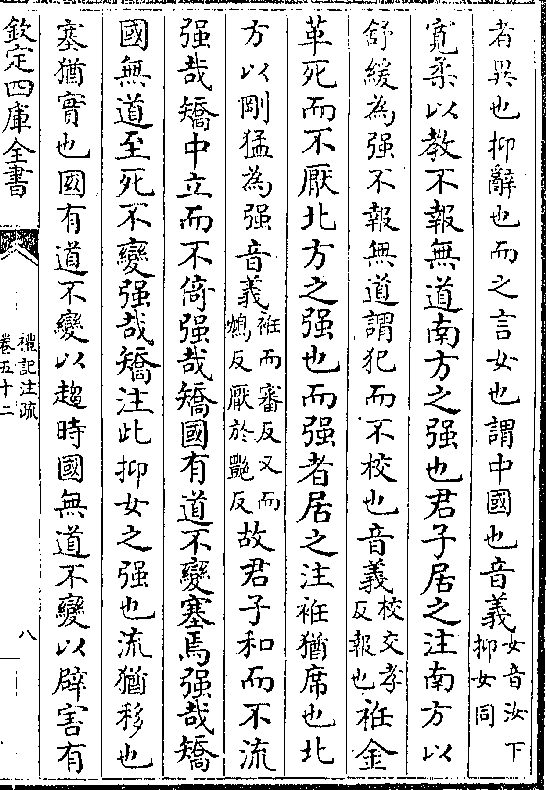 者異也抑辭也而之言女也謂中國也音義女音汝下抑女同
寛柔以教不報無道南方之强也君子居之注南方以
舒緩為强不報無道謂犯而不校也音義校交孝反報也衽金
革死而不厭北方之强也而强者居之注衽猶席也北
方以剛猛為强音義衽而審反又而鴆反厭於豔反故君子和而不流
强哉矯中立而不倚强哉矯國有道不變塞焉强哉矯
國無道至死不變强哉矯注此抑女之强也流猶移也
塞猶實也國有道不變以趨時國無道不變以辟害有
欽定四庫全書
禮記注疏
卷五十二
八